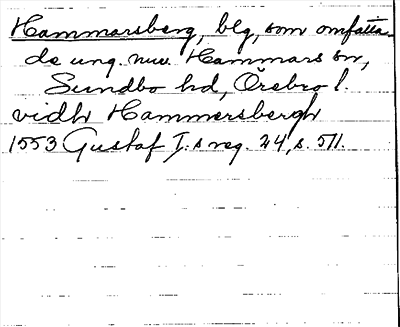 Hammarsberg, blg, som omfatta-
de ung. nuv. Hammars sn,
Sundbo hd, Örebro l.
vidh Hammersbergh
1553 Gustaf I:s reg. 24, s. 511.